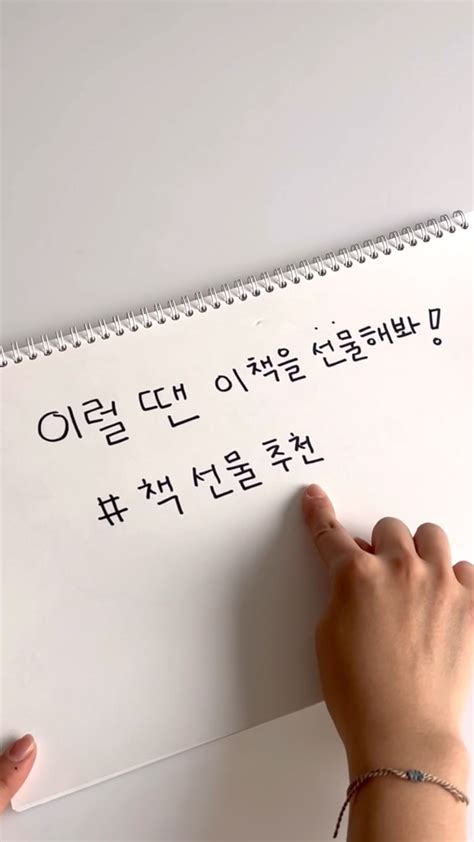 이럴 땐 이 책을 선물해봐!
# 책 선물 추천